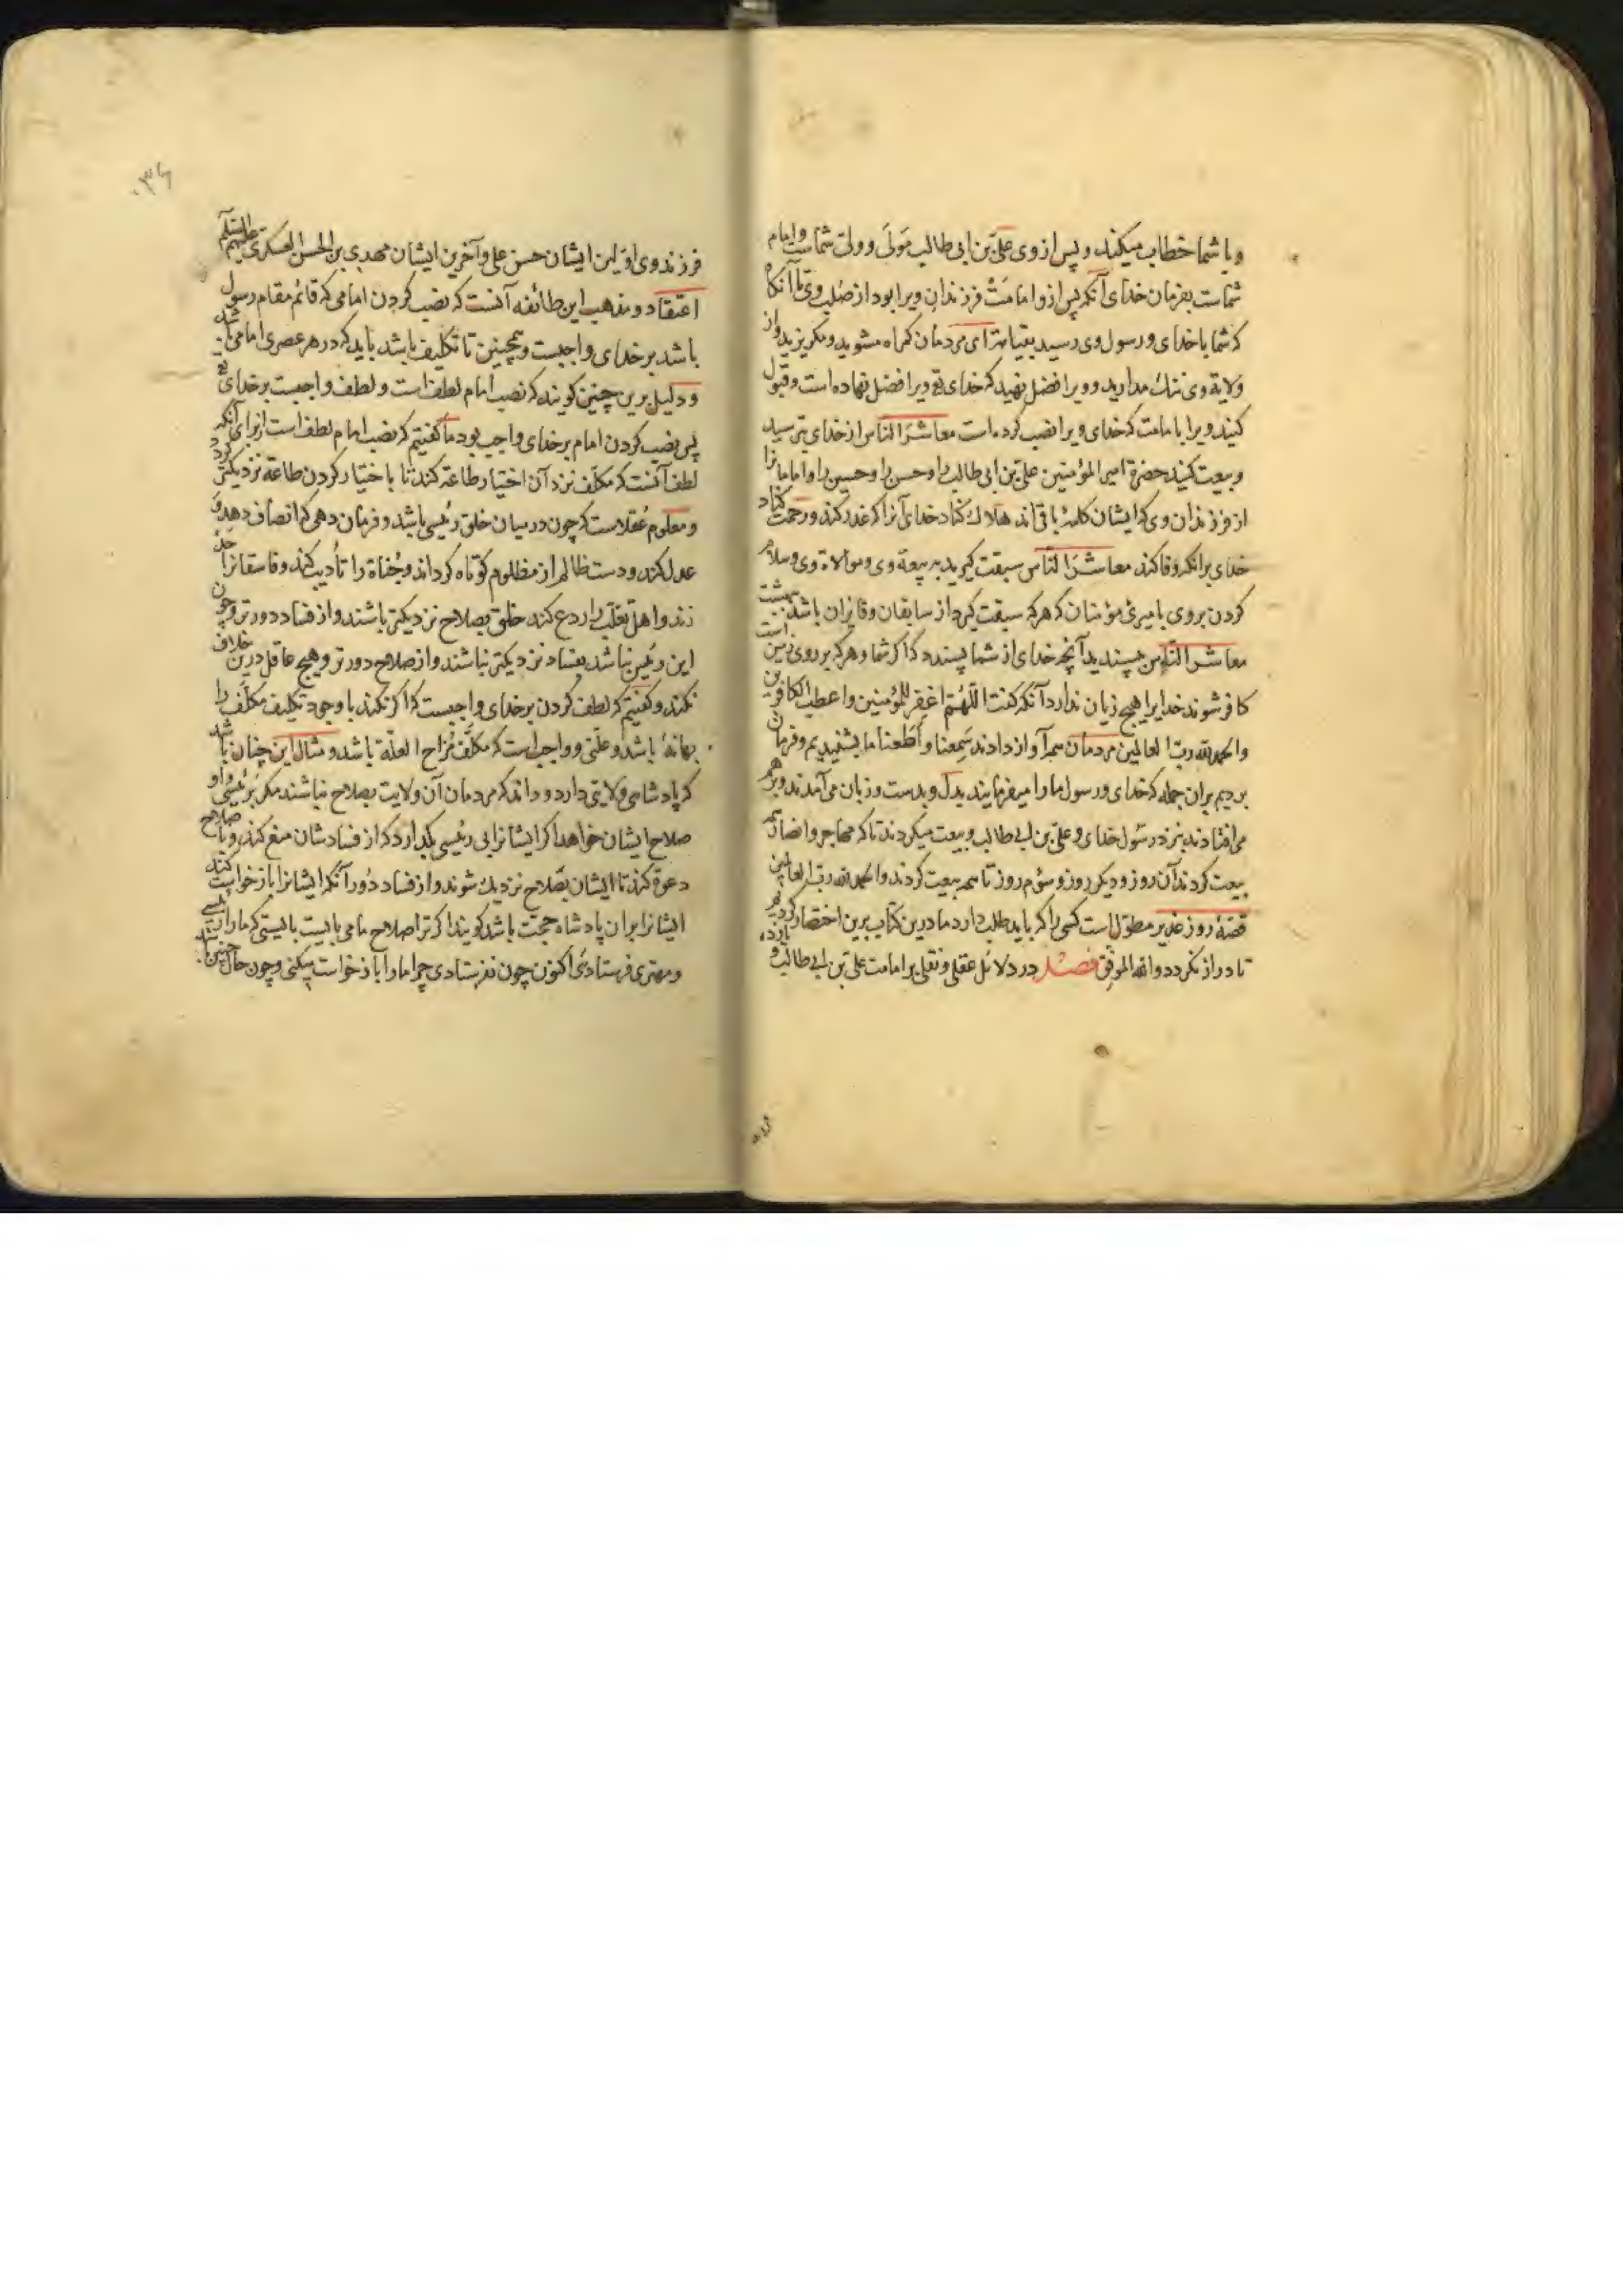 و با شما خطاب میکند و پس از وی علی بن ابی طالب مَولَی و ولی شماست و امام
شماست بفرمان خدای آنکه پس ازو امامت فرزندان ویرا بود از صُلب وی تا آنکاه
که شما با خدای و رسول وی رسید بقیامة ای مردمان کمراه مشوید و مکریزید و از
ولایة وی ننك مدارید و ویرا افضل نهید که خدای تع ویرا افضل نهاده است و قبول
کنید ویرا بامامت که خدای ویرا نصب کرده است معاشَر النّاس از خدای بترسید
و بیعت کنید حضرة امیر المؤمنین علی بن ابی طالب را و حسن را و حسین را و امامانرا
از فرزندان وی که ایشان کلمهٔ باقی اند هلاك کناد خدای آنرا که غدر کند و رحمت کناد
خدای برانکه وفا کند معاشَر النّاس سبقت کیرید به بیعة وی و موالاة وی و سلام
کردن بر وی بامیری مؤمنان که هر که سبقت کیرد از سابقان و فایزان باشد ببهشت
معاشر النّاس بپسندید آنچه خدای از شما پسندد که اکر شما و هر که بر روی زمین است
کافر شوند خدایرا هیچ زیان ندارد آنکه کفت اللّهُمّ اغفِر للمؤمنین و اعطب الکافرین
والحمد لله ربّ العالمین مردمان همه آواز دادند سَمِعنا وَأَطَعنا ما بشنیدیم و فرمان
بردیم بران جمله که خدای و رسول ما را میفرمایند بدل و بدست و زبان می آمدند و بر هم
می افتادند بنزد رسول خدای و علی بن ابی طالب و بیعت میکردند تا که مهاجر و انصار همه
بیعت کردند آن روز و دیکر روز و سوّم روز تا همه بیعت کردند والحمد لله ربّ العالمین
قصهٔ روز غدیر مطوّل است کسی را که باید طلب دارد ما درین کتاب برین اختصار کردیم
تا دراز نکردد والله الموفّق فصل در دلائل عقلی و نقلی بر امامت علی بن ابی طالب و یازده
فرزند وی اوّلین ایشان حسن علی و آخرین ایشان مهدی بن الحسن العسکری علیهم السلم
اعتقاد و مذهب این طائفه آنست که نصب کردن امامی که قائم مقام رسول
باشد بر خدای واجبست و همچنین تا تکلیف باشد باید که در هر عصری امامی باشد
و دلیل برین چنین کویند که نصب امام لطف است و لطف واجبست بر خدای تع
پس نصب کردن امام بر خدای واجب بود ما کفتیم که نصب امام لطف است از برای آنکه
لطف آنست که مکلّف نزد آن اختیار طاعة کند تا باختیار کردن طاعة نزدیکتر کردد
و معلوم عُقلاست که چون در میان خلق رئیسی باشد و فرمان دهی که انصاف دهد و
عدل کند و دست ظالم از مظلوم کوتاه کرداند و جُفاة را تأدیب کند و فاسقانرا حدّ
زند و اهل تغلّب را ردع کند خلق بصلاح نزدیکتر باشند و از فساد دورتر و چون
این رئیس نباشد بفساد نزدیکتر باشند و از صلاح دورتر و هیچ عاقل درین خلاف
نکند و کفتیم که لطف کردن بر خدای واجبست که اکر نکند با وجود تکلیف مکلّف را
بهانهٔ باشد و علّتی و واجب است که مکلّف مُزاح العلّة باشد و مثال این چنان باشد
که پادشاهی ولایتی دارد و داند که مردمان آن ولایت بصلاح نباشند مکر برئیسی و او
صلاح ایشان خواهد اکر ایشانرا بی رئیسی بکذارد که از فسادشان منع کند و با صلاح
دعوة کند تا ایشان بصلاح نزدیك شوند و از فساد دُور آنکه ایشانرا بازخواست کند
ایشانرا بران پادشاه حجّت باشد کویند اکر ترا صلاح ما می بایست بایستی که ما را رئیسی
و مهتری فرستادی اکنون چون نفرستادی چرا ما را بازخواست میکنی و چون حال چنین باشد